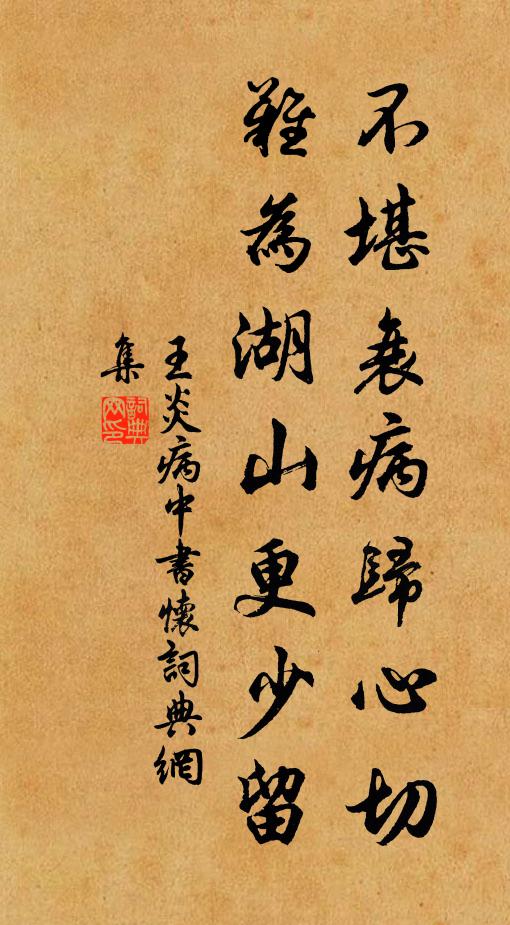 不堪衰病歸心切
難為湖山更少留
王炎病中書懷詞典網
集
詞典
网印